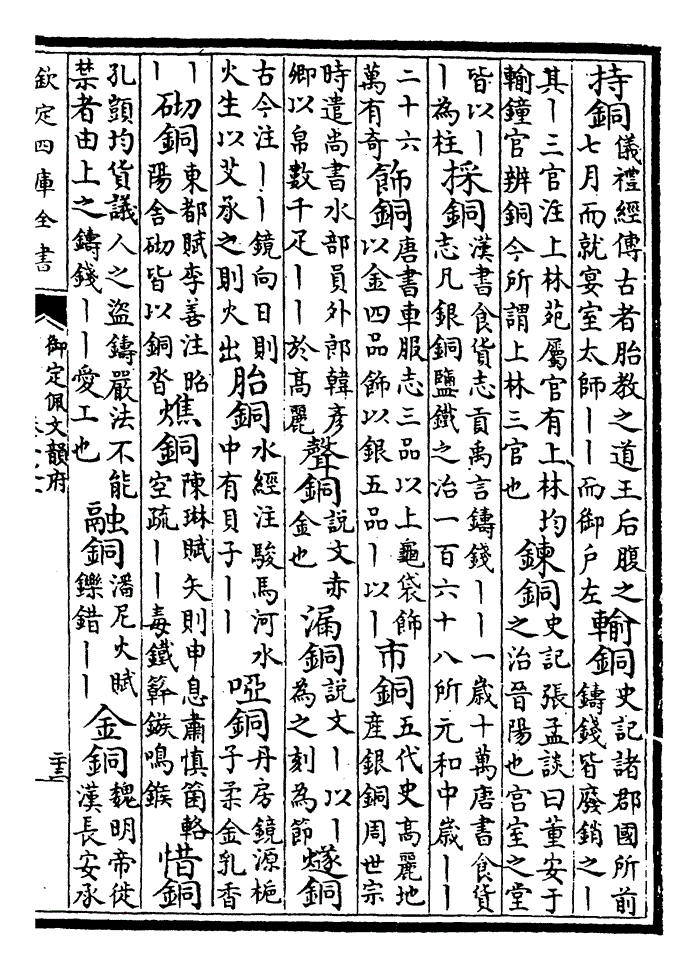 持銅
儀禮經傳古者胎教之道王后腹之
七月而就宴室太師丨丨而御户左
輸銅
史記諸郡國所前
鑄錢皆廢銷之丨
其丨三官注上林苑屬官有上林均
輸鐘官辨銅今所謂上林三官也
鍊銅
史記張孟談曰董安于
之治晉陽也宫室之堂
皆以丨
丨為柱
採銅
漢書食貨志貢禹言鑄錢丨丨一歳十萬唐書食貨
志凡銀銅鹽鐵之冶一百六十八所元和中歳丨丨
二十六
萬有奇
飾銅
唐書車服志三品以上龜袋飾
以金四品飾以銀五品丨以丨
市銅
五代史高麗地
産銀銅周世宗
時遣尚書水部員外郎韓彦
卿以帛數千疋丨丨於高麗
聲銅
説文赤
金也
漏銅
説文丨以丨
為之刻為節
燧銅
古今注丨丨鏡向日則
火生以艾承之則火出
胎銅
水經注駿馬河水
中有貝子丨丨
啞銅
丹房鏡源梔
子柔金乳香
丨
丨
砌銅
東都賦李善注昭
陽舍砌皆以銅沓
燋銅
陳琳賦矢則申息肅慎箘簵
空疏丨丨毒鐵簳鏃鳴鍭
惜銅
孔顗均貨議人之盜鑄嚴法不能
禁者由上之鑄錢丨丨愛工也
融銅
潘尼火賦
鑠錯丨丨
金銅
魏明帝徙
漢長安承
欽定四庫全書
御定佩文韻府
二十三